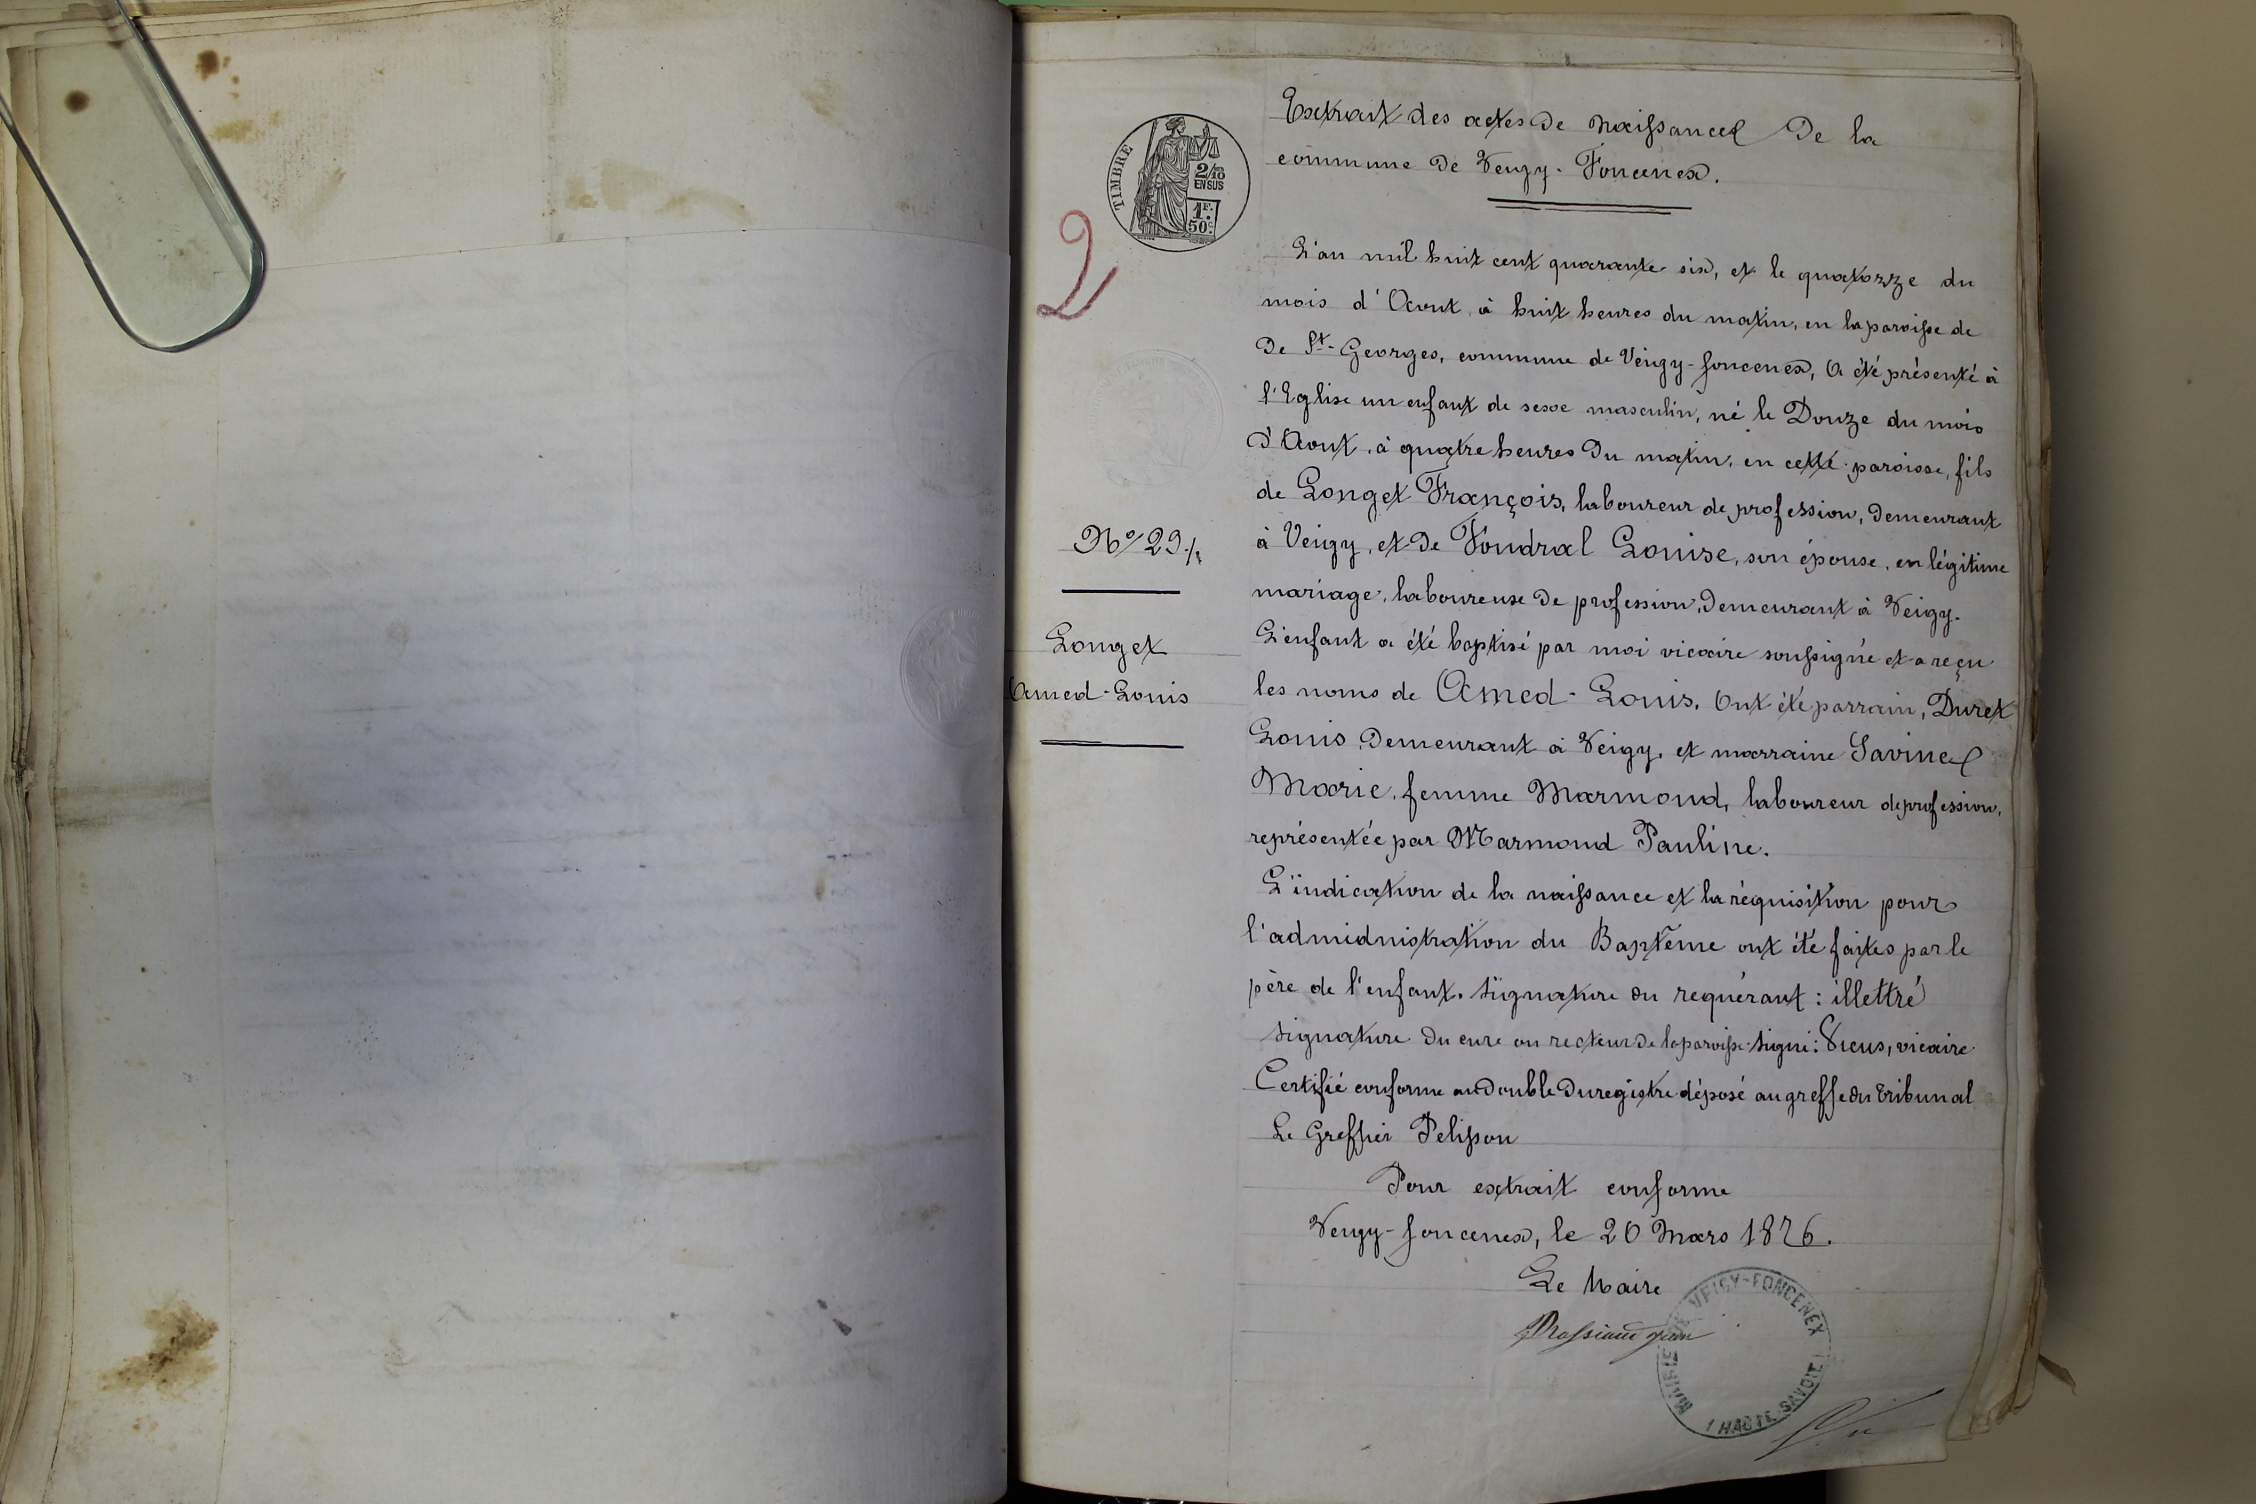 Extrait des actes de naissance De la
commune De Veigy-Foncenex.
TIMBRE
2/10 EN SUS
1F. 50c.
2
L'an mil huit cent quarante six, et le quatorze du
mois d'Aout, à huit heures du matin, en la paroisse de
De St-Georges, commune de Veigy-foncenex, a été présenté à
l'Eglise un enfant de sexe masculin, né le Douze du mois
d'Aout, à quatre heures du matin, en cette paroisse, fils
de Longet François, laboureur de profession, demeurant
à Veigy, et De Foudral Louise, son épouse, en légitime
mariage, laboureuse De profession, Demeurant à Veigy.
L'enfant a été baptisé par moi vicaire soussigné et a reçu
les noms de Amed-Louis. Ont été parrain, Duret
Louis Demeurant à Veigy, et marraine Savinel
Marie, femme Marmoud, laboureur de profession,
représentée par Marmoud Pauline.
L'indication de la naissance et la réquisition pour
l'admidnistration du Baptême ont été faites par le
père de l'enfant. Signature du requérant : illettré
Signature Du cure ou recteur De la paroisse signé : vicaire
Certifié conforme au Double Du registre déposé au greffe du tribunal
Le Greffier Pelisson
Pour extrait conforme
Veigy-foncenex, le 20 Mars 1876.
Le Maire
N° 29
Longet
Amed-Louis
MAIRIE DE VEIGY-FONCENEX
(HAUTE-SAVOIE)